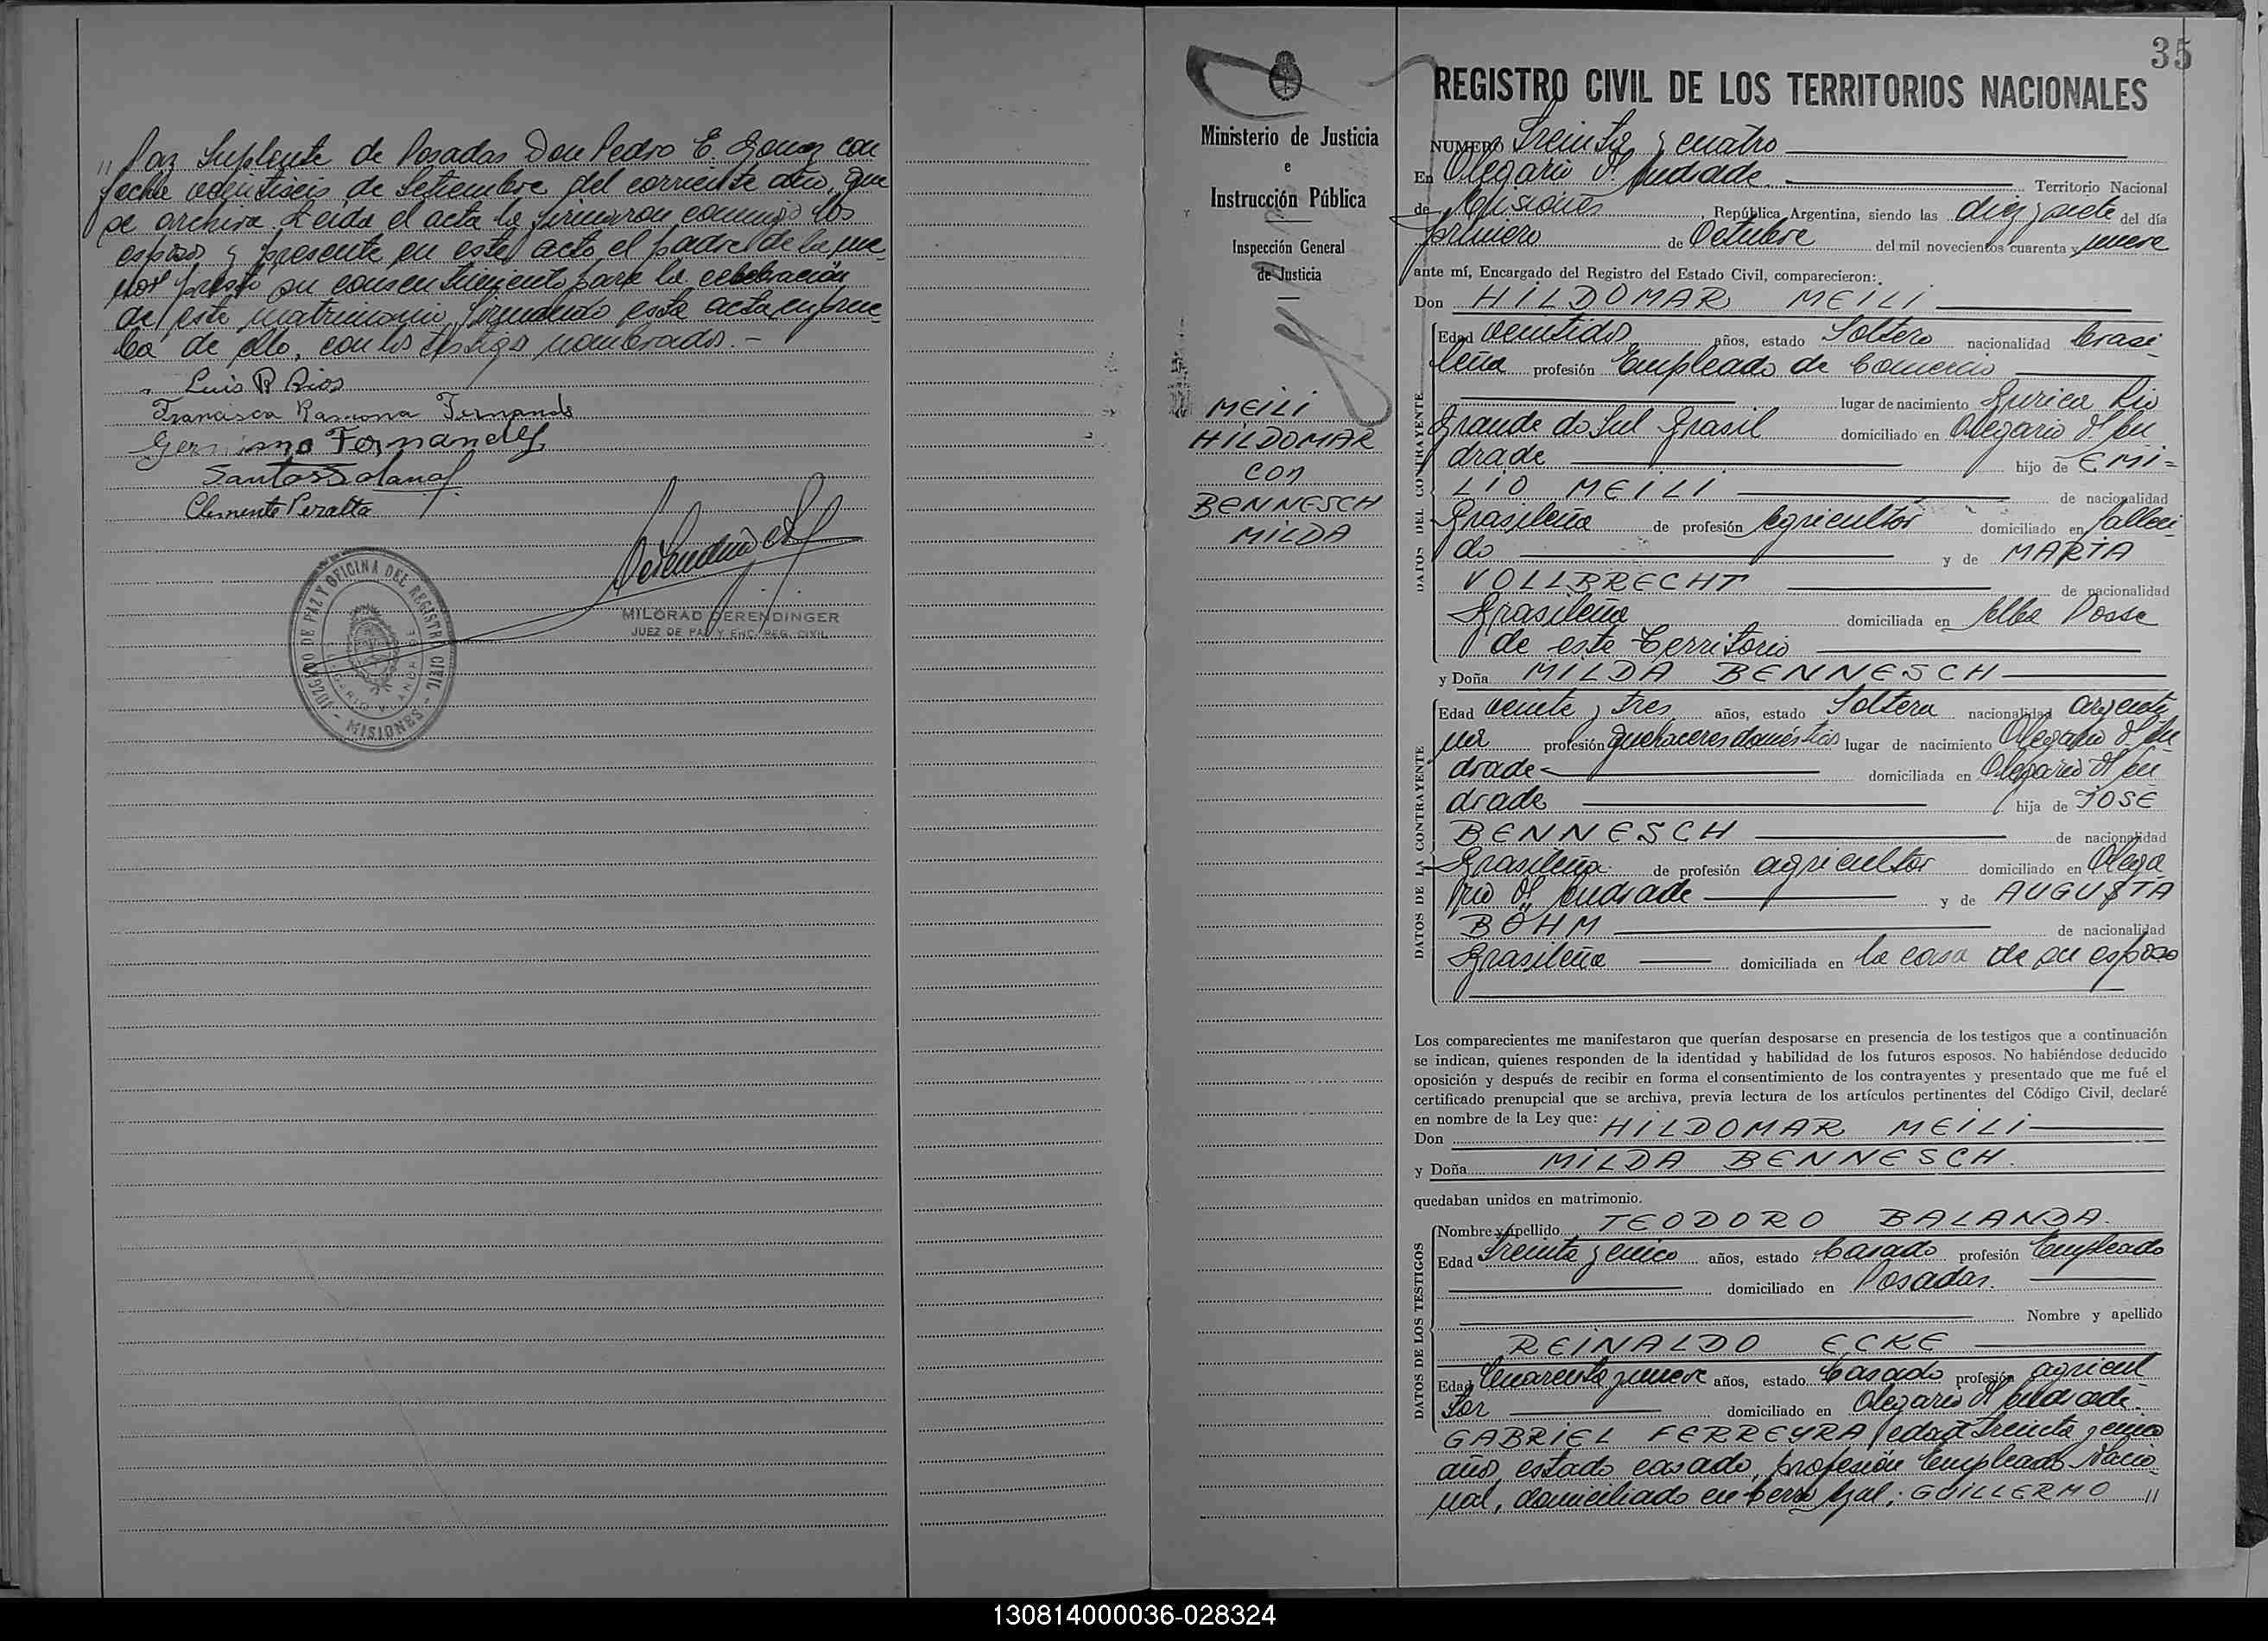 " Paz Suplente de Posadas Don Pedro E. Gomez con
fecha veintiseis de Setiembre del corriente año, que
se archiva. Leida el acta la firmaron conmigo los
esposos y presente en este acto el padre de la me-
nor prestó su consentimiento para la celebración
de este matrimonio, firmando esta acta en prue-
ba de ello, con los testigos nombrados. -
Luis R Rios
Francisca Ramona Fernande
Geronimo Fernandez
Santos Solano
Clemente Peralta
MILORAD DERENDINGER
JUEZ DE PAZ Y ENC. REG. CIVIL
JUZGADO DE PAZ Y OFICINA DEL REGISTRO CIVIL - MISIONES -
OLEGARIO V. ANDRADE
Ministerio de Justicia
e
Instrucción Pública
Inspección General
de Justicia
MEILI
HILDOMAR
con
BENNESCH
MILDA
35
REGISTRO CIVIL DE LOS TERRITORIOS NACIONALES
NUMERO Treinta y cuatro
En Olegario V. Andrade. Territorio Nacional
de Misiones, República Argentina, siendo las diez y siete del día
primero de Octubre del mil novecientos cuarenta y nueve
ante mí, Encargado del Registro del Estado Civil, comparecieron:
Don HILDOMAR MEILI
DATOS DEL CONTRAYENTE
Edad veintidos años, estado Soltero nacionalidad brasi-
leña profesión Empleado de Comercio
lugar de nacimiento Rio
Grande do Sul Brasil domiciliado en Olegario V. An
drade hijo de EMI=
LIO MEILI de nacionalidad
Brasileña de profesión Agricultor domiciliado en falleci-
do y de MARTA
VOLLBRECHT de nacionalidad
Brasileña domiciliada en Alba Posse
de este Territorio
y Doña MILDA BENNESCH
DATOS DE LA CONTRAYENTE
Edad veinte y tres años, estado Soltera nacionalidad argenti
na profesión quehaceres domésticos lugar de nacimiento Olegario V. An-
drade - domiciliada en Olegario V. An
drade hija de JOSE
BENNESCH de nacionalidad
Brasileña de profesión agricultor domiciliado en Olega
rio V. Andrade y de AUGUSTA
BÖHM de nacionalidad
Brasileña domiciliada en la casa de su esposo
Los comparecientes me manifestaron que querían desposarse en presencia de los testigos que a continuación
se indican, quienes responden de la identidad y habilidad de los futuros esposos. No habiéndose deducido
oposición y después de recibir en forma el consentimiento de los contrayentes y presentado que me fué el
certificado prenupcial que se archiva, previa lectura de los artículos pertinentes del Código Civil, declaré
en nombre de la Ley que:
Don HILDOMAR MEILI
y Doña MILDA BENNESCH.
quedaban unidos en matrimonio.
DATOS DE LOS TESTIGOS
Nombre y apellido TEODORO BALANDA.
Edad Treinta y cinco años, estado Casado profesión Empleado
domiciliado en Posadas.
Nombre y apellido
REINALDO ECKE
Edad Cuarenta y nueve años, estado Casado profesión agricul
tor domiciliado en Olegario V. Andrade.
GABRIEL FERREYRA, edad treinta y cinco
años, estado casado, profesión Empleado Nacio-
nal, domiciliado en Cerro Azul; GUILLERMO "
130814000036-028324